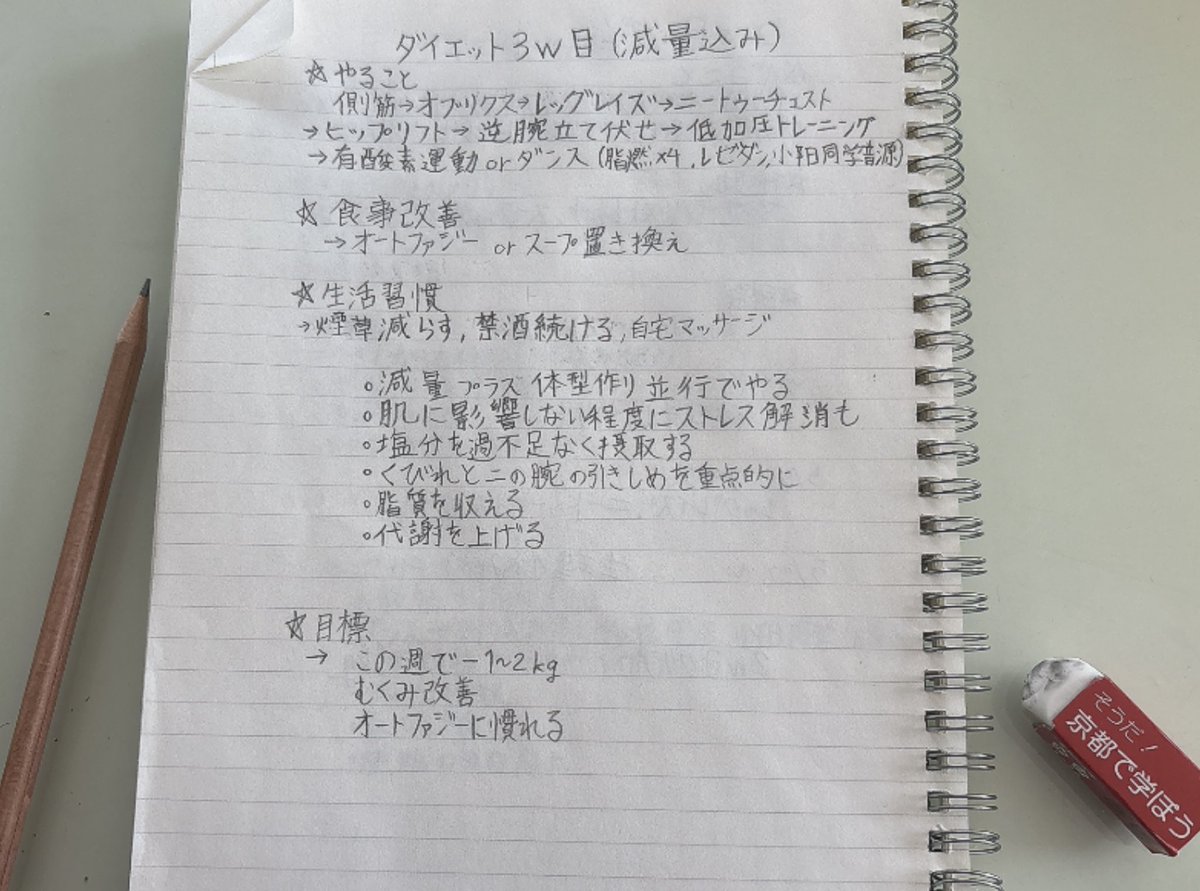 ダイエット3w目(減量込み)
☆やること
側筋→オブリクス→レッグレイズ→ニートゥーチェスト
→ヒップリフト→逆腕立て伏せ→低加圧トレーニング
→有酸素運動orダンス(脂燃×4,レビダン,小阳同学音源)
☆食事改善
→オートファジー orスープ置き換え
☆生活習慣
→煙草減らす,禁酒続ける,自宅マッサージ
○減量プラズ体型作り並行でやる
○肌に影響しない程度にストレス解消も
○塩分を過不足なく摂取する
○くびれと二の腕の引きしめを重点的に
○脂質を収える
○代謝を上げる
☆目標
→ この週で-1~2kg
むくみ改善
オートファジーに慣れる
そうだ!
京都で学ぼう